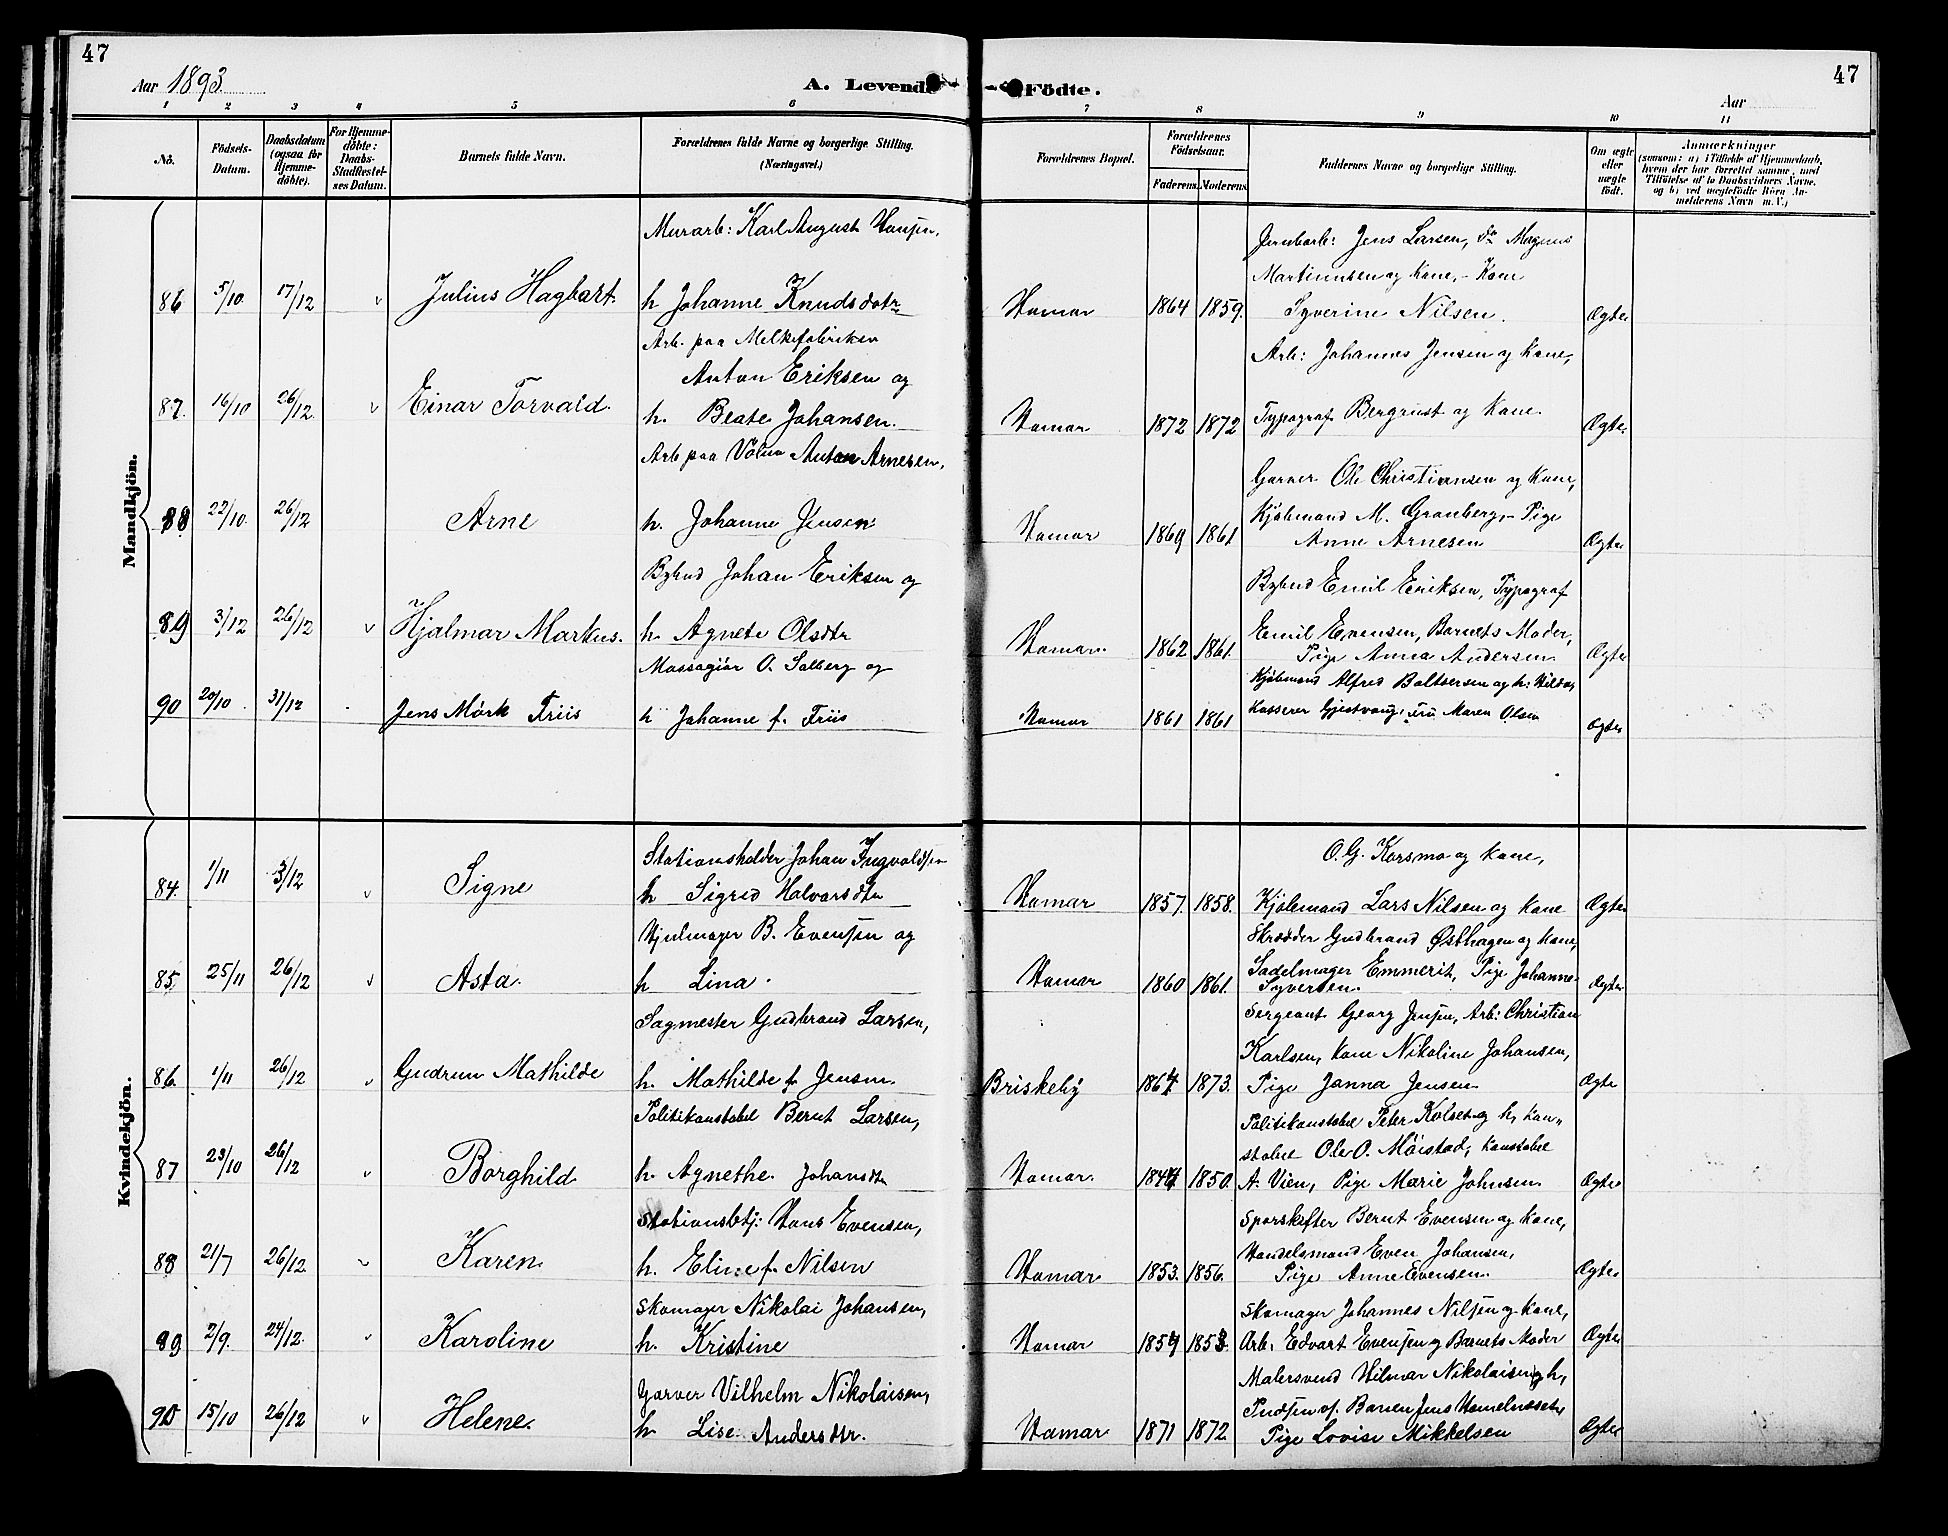 47
47
Aar 1893
A. Levende Födte.
Aar
1 2 3 4 5 6 7 8 9 10 11
No.
Födsels-Datum.
Daabsdatum (ogsaa for Hjemme-döbte).
For Hjemme-döbte: Daabs-Stadfæstel-ses Datum.
Barnets fulde Navn.
Forældrenes fulde Navne og borgerlige Stilling. (Næringsvei.)
Forældrenes Bopæl.
Forældrenes Födselsaar.
Faderens. Moderens.
Faddernes Navne og borgerlige Stilling.
Om ægte eller uægte födt.
Anmærkninger
(saasom: a) i Tilfælde af Hjemmedaab, hvem der har forrettet samme, med Tilföielse af to Daabsvidners Navne, og b) ved uægtefödte Börn Anmelderens Navn m. V.)
Mandkjön.
Murarb: Karl August Hansen,
Jernbarb: Jens Larsen, do Magnus
Martinusen og Kone, - Kone
86 5/10. 17/12 v Julius Hagbart. h Johanne Knudsdotr Hamar 1864 1859. Syverine Nilsen. Ægte
Arb. paa Melkefabriken
Arb: Johannes Jensen og Kone,
Anton Eriksen og
87. 16/10 26/12. v Einar Torvald. h. Beate Johansen. Hamar 1872 1872 Typograf Bergrust og Kone. Ægte
Arb paa Anton Arnesen,
Garver Ole Christiansen og Kone,
88 22/10. 26/12 Arne h. Johanne Jensen. Hamar 1869 1861 Kjøbmand M. Granberg, - Pige
Anne Arnesen Ægte
Bybud Johan Eriksen og
Bybud Emil Eriksen, Typograf
89 3/12 26/12 v Hjalmar Markus. h. Agnete Olsdtr Hamar. 1862 1861. Emil Evensen, Barnets Moder,
Pige Anna Andersen Ægte
Massagiør O. Salberg og
Kjøbmand Alfred Baltsersen og h: Hilda,
90 20/10. 31/12 Jens Mørk Friis h Johanne f. Friis Hamar 1861 1861 Kasserer Gjestvang, Fru Maren Olsen Ægte
Kvindekjön.
Stationsholder Johan Ingvoldsen
O. G. Korsmo og Kone,
84. 1/11 3/12 v Signe h Sigrid Halvorsdtr Hamar 1857. 1858. Kjøbmand Lars Nilsen og Kone Ægte
Hjulmager B. Evensen og
Skrædder Gudbrand Østhagen og Kone,
85. 25/11 26/12 v Asta. h Lina. Hamar 1860 1861. Sadelmager Emmerit, Pige Johanne
Syversen. Ægte
Sagmester Gudbrand Larsen,
Sergeant Georg Jensen, Arb: Christian
Karlsen, Kone Nikoline Johansen,
86. 1/11 26/12 v Gudrun Mathilde h. Mathilde f. Jensen. Briskeby 1864 1873. Pige Janna Jensen Ægte
Politikonstabel Bernt Larsen,
Politikonstabel Peter Kolset og h, Kon-
stabel Ole O. Møistad, Konstabel
87 23/10 26/12 v Borghild h. Agnethe Johansdtr Hamar. 1850. A. Vien, Pige Marie Johnsen Ægte
Stationsbtj: Hans Evensen,
Sporskifter Bernt Evensen og Kone,
88 21/7 26/12. Karen. h. Eline f. Nilsen Hamar 1853. 1856. Handelsmand Even Johansen,
Pige Anne Evensen. Ægte
Skomager Nikolai Johansen,
Skomager Johannes Nilsen og Kone,
89 2/9. 24/12. v Karoline h. Kristine Hamar Arb. Edvart Evensen og Barnets Moder Ægte
Garver Vilhelm Nikolaisen,
Malersvend Hilmar Nikolaisen og h,
90 15/10 26/12 v Helene. h. Lise Andersdtr. Hamar 1871 1872 Jens
Pige Lovise Mikkelsen Ægte